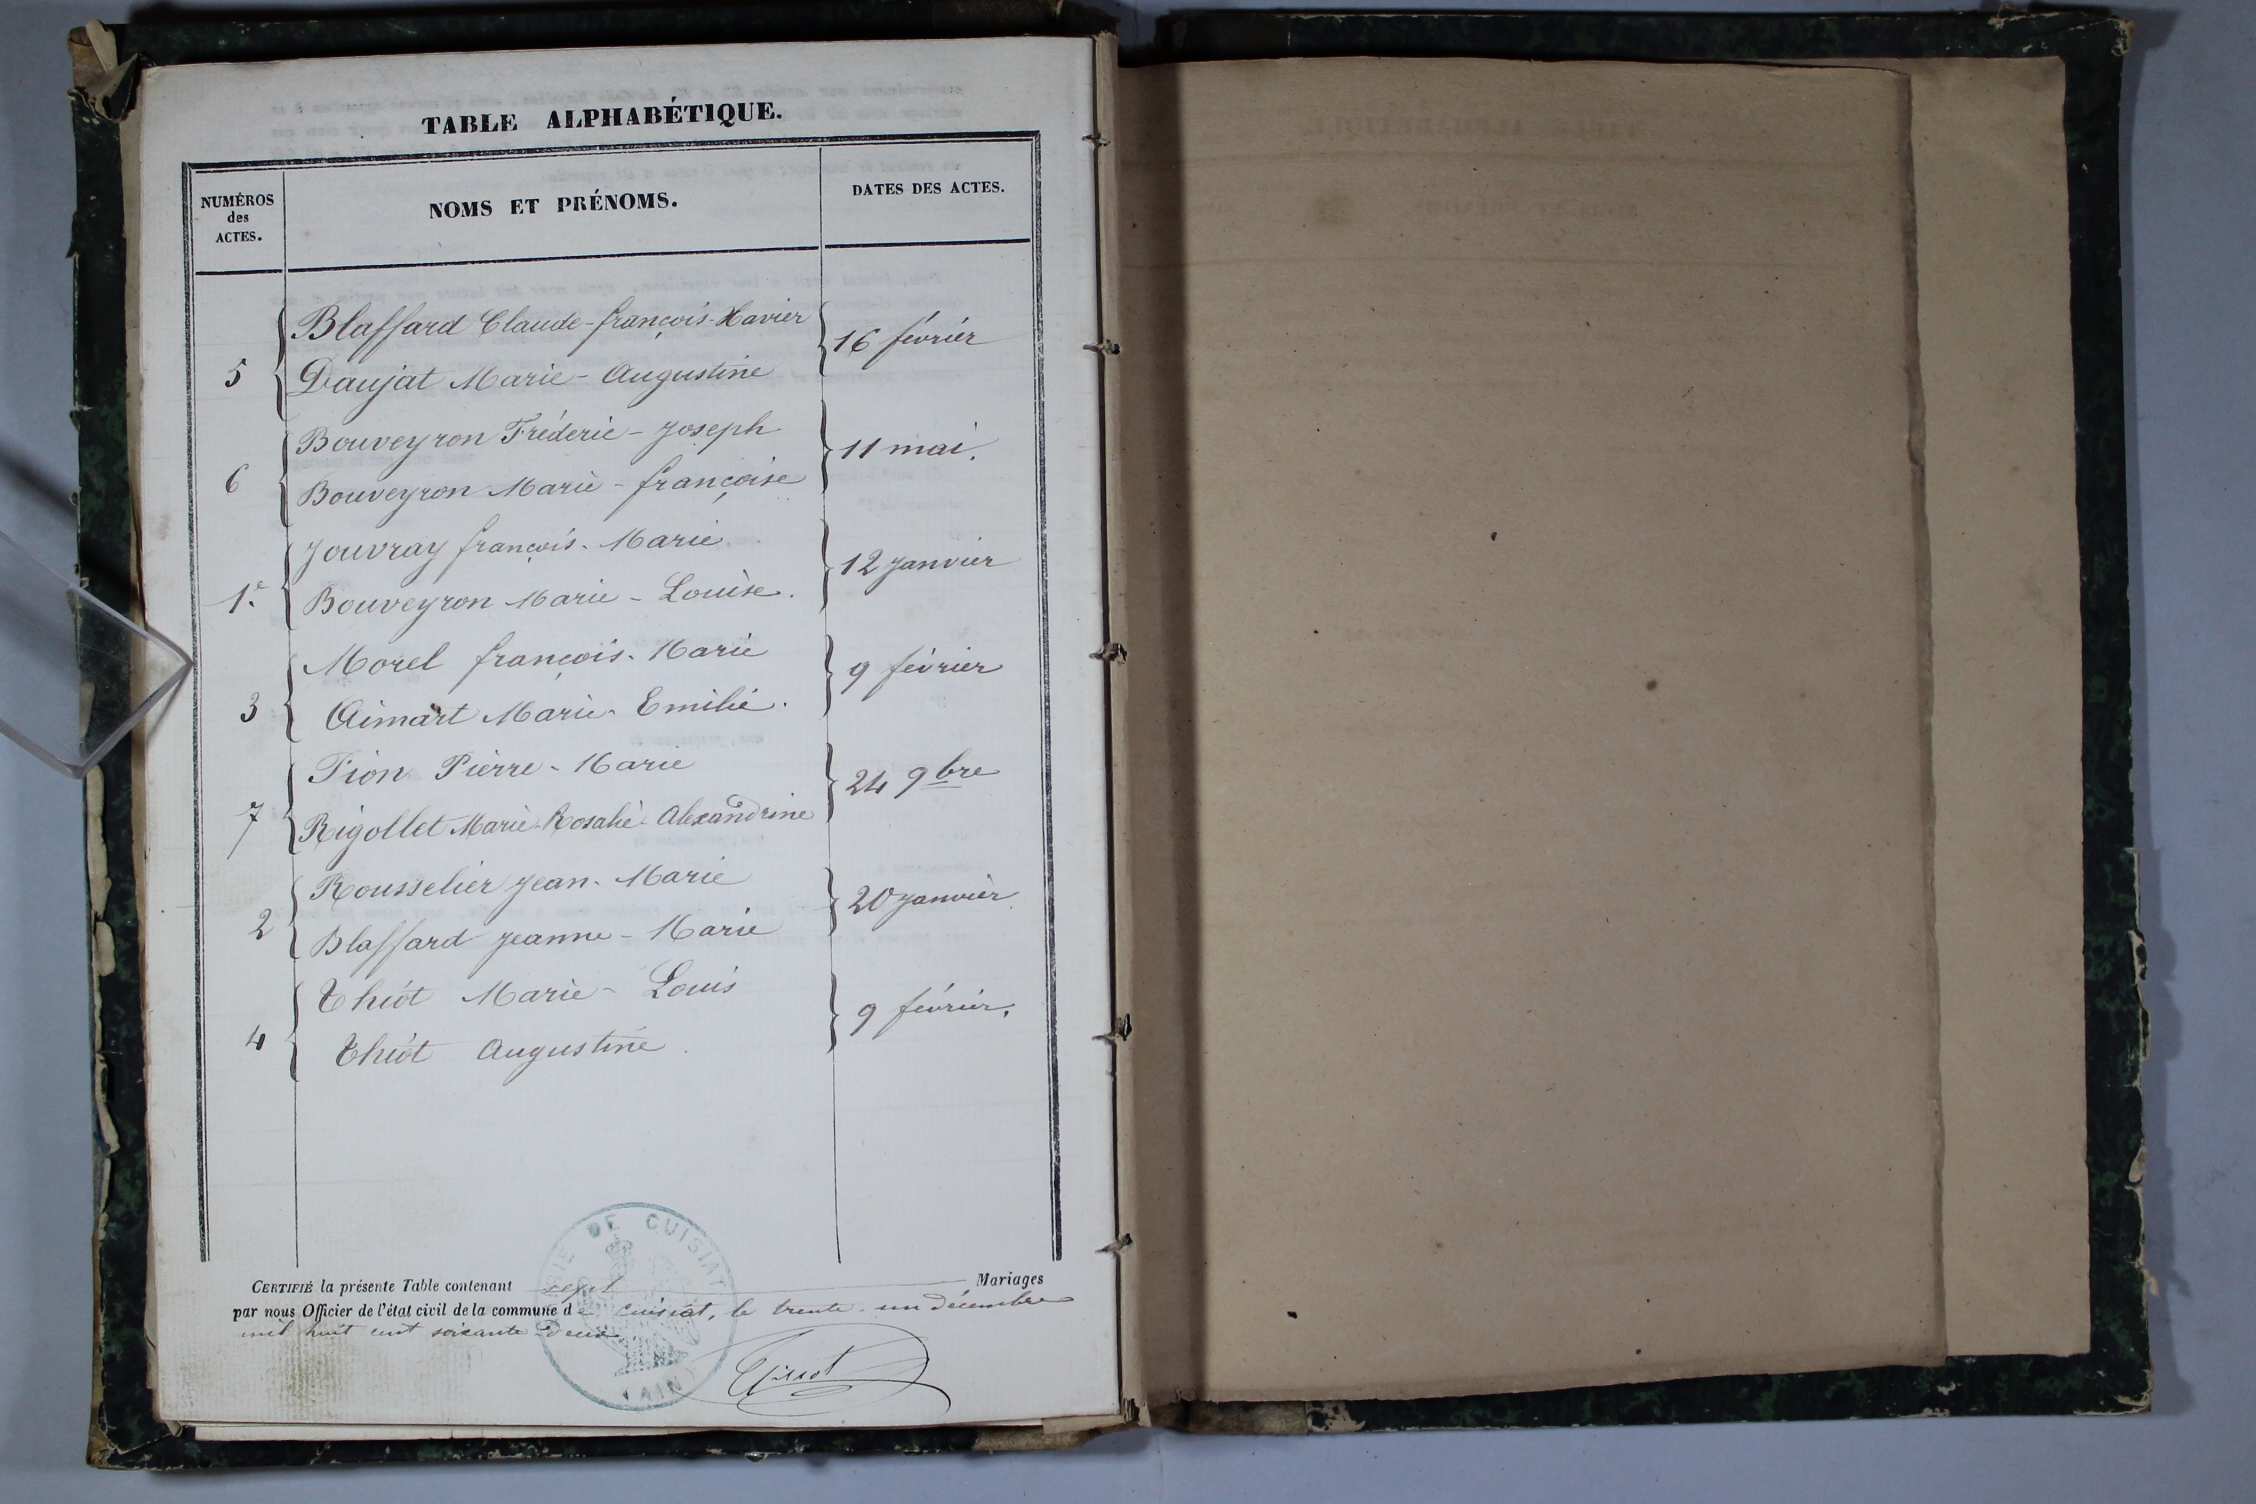 TABLE ALPHABÉTIQUE.
NUMÉROS
des
ACTES.
NOMS ET PRÉNOMS.
DATES DES ACTES.
Blaffard Claude-françois-Xavier
16 février
5
Daujat Marie-Augustine
Bouveyron Fréderic-Joseph
11 mai.
6
Bouveyron Marie-françoise
Jouvray françois-Marie
12 janvier
1.e
Bouveyron Marie-Louise.
Morel françois-Marie
9 février
3
Aimart Marie-Emilie.
Pion Pierre-Marie
24 9bre
7
Rigollet Marie-Rosalie-Alexandrine
Rousselier Jean-Marie
20 janvier
2
Blaffard Jeanne-Marie
Thiot Marie-Louis
9 février.
4
Thiot Augustine
CERTIFIÉ la présente Table contenant sept Mariages
par nous Officier de l'état civil de la commune de Cuisiat, le trente-un décembre
mil huit cent soixante-Deux
MAIRIE DE CUISIAT
(AIN)